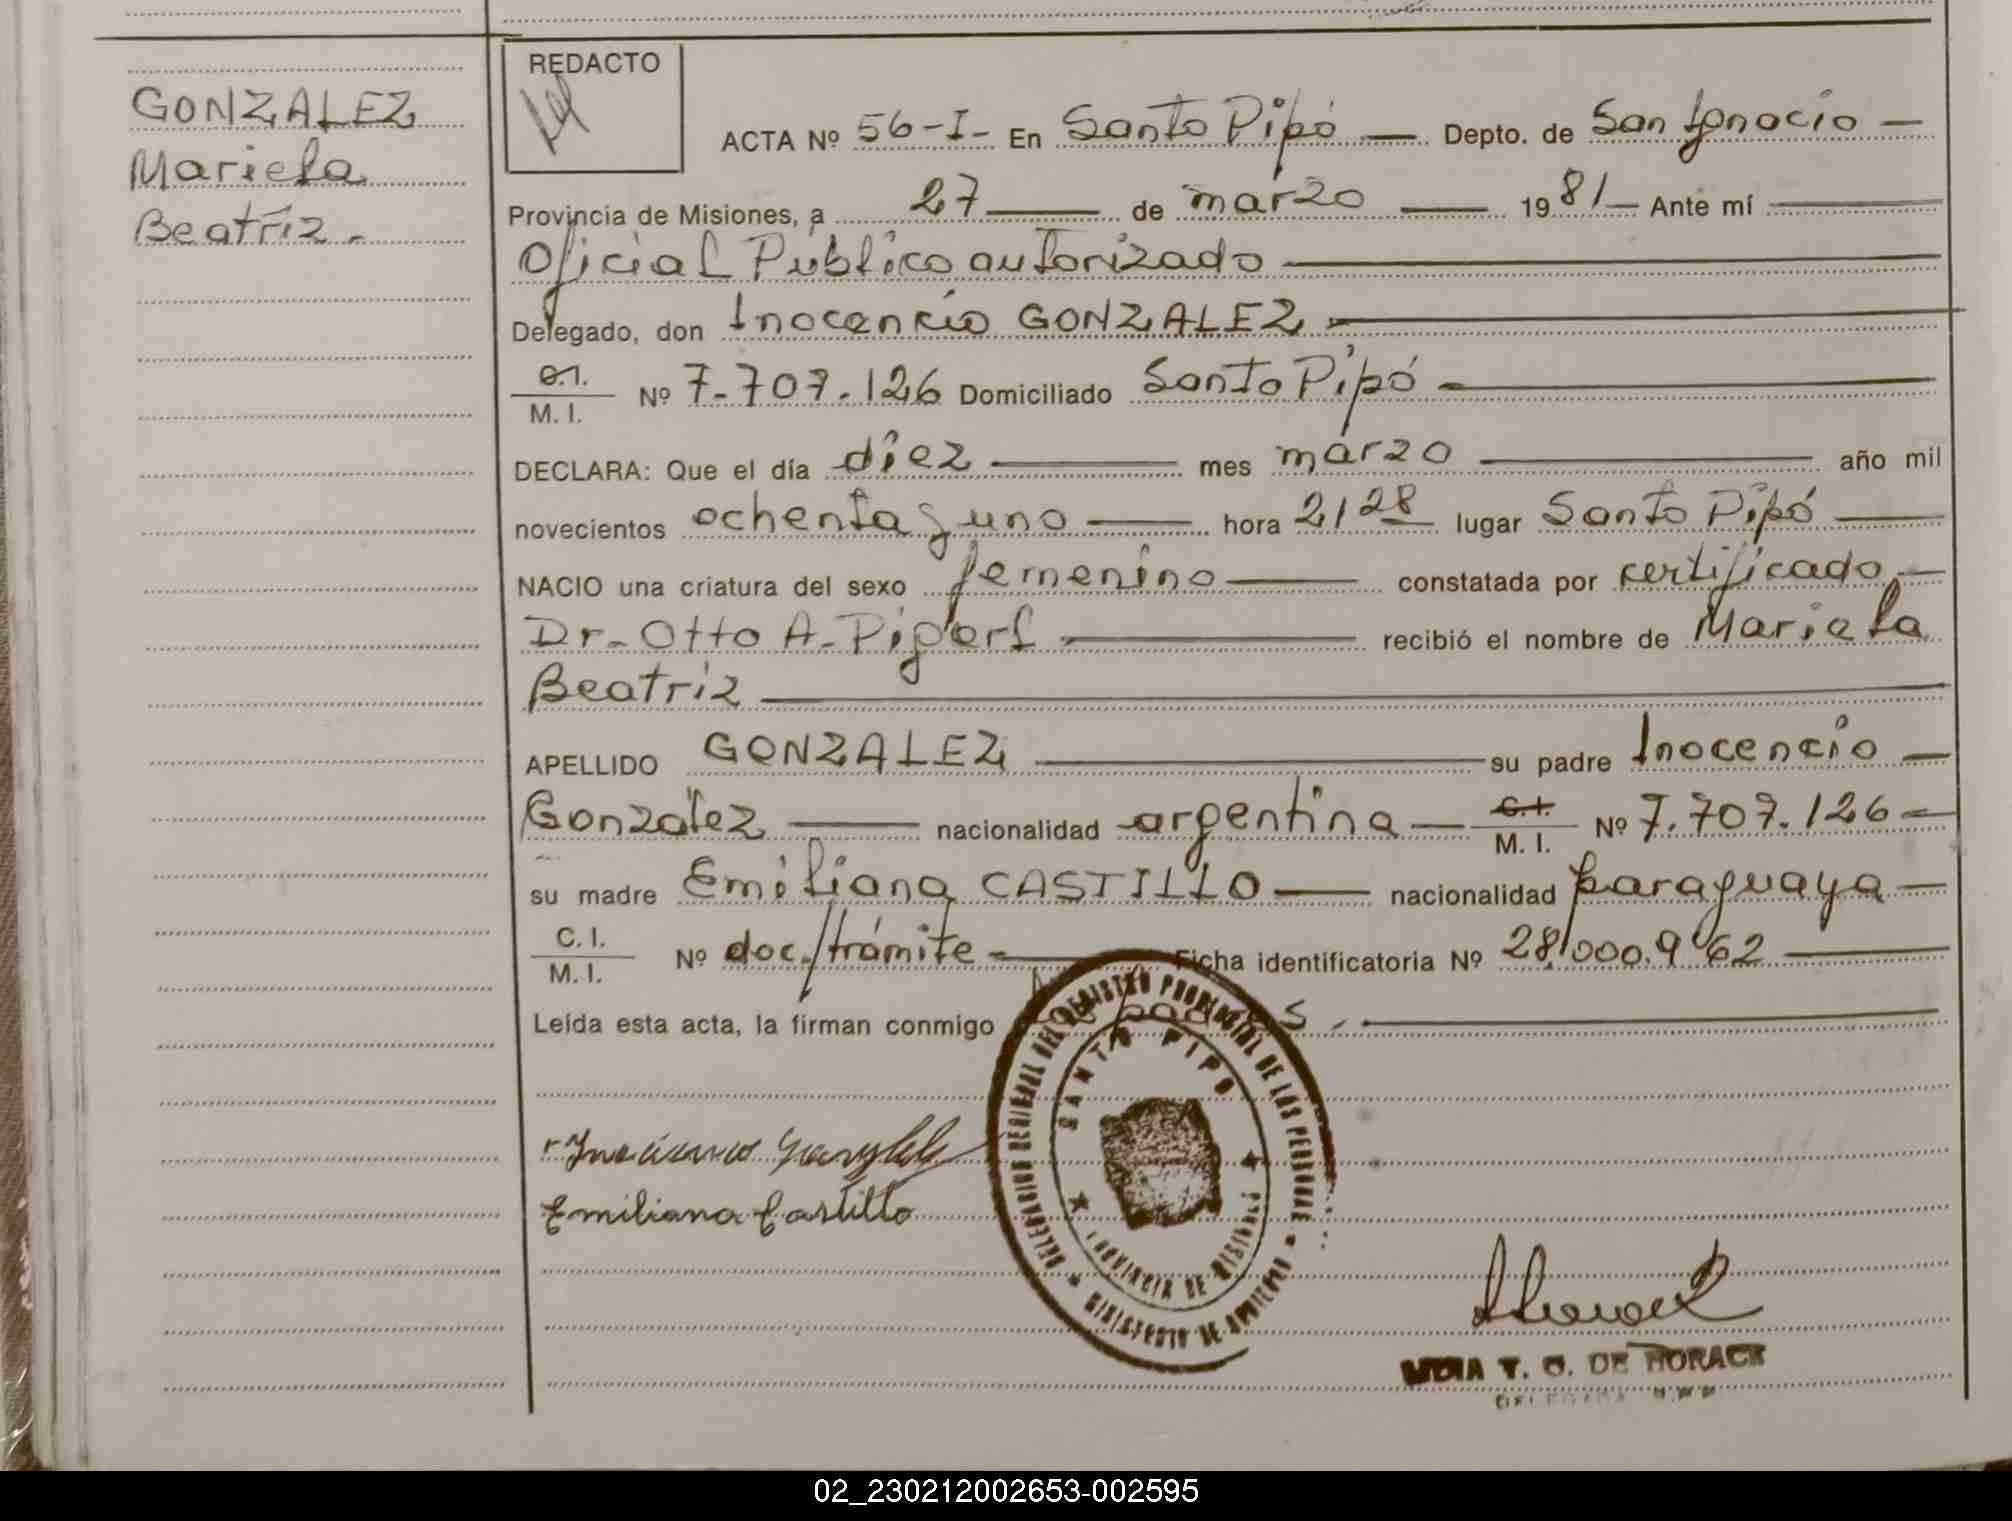 GONZALEZ
Mariela
Beatríz.
REDACTO
ACTA Nº 56-I- En Santo Pipó Depto. de San Ignacio
Provincia de Misiones, a 27 de marzo 1981 Ante mí
Oficial Público autorizado
Delegado, don Inocencio GONZALEZ
C.I.
M. I. Nº 7.707.126 Domiciliado Santo Pipó
DECLARA: Que el día diez mes marzo año mil
novecientos ochenta y uno hora 21 28 lugar Santo Pipó
NACIO una criatura del sexo femenino constatada por certificado
Dr. Otto A. recibió el nombre de Mariela
Beatriz
APELLIDO GONZALEZ su padre Inocencio
González nacionalidad argentina C.I.
M. I. Nº 7.707.126
su madre Emiliana CASTILLO nacionalidad paraguaya
C. I.
M. I. Nº doc./trámite Ficha identificatoria Nº 28.000.962
Leída esta acta, la firman conmigo los padres.
Emiliana Castillo
DELEGACION REGIONAL DEL REGISTRO PROVINCIAL DE LAS PERSONAS
SANTO PIPO
PROVINCIA DE MISIONES
MINISTERIO DE GOBIERNO
LIDIA T. O. DE HORACK
02_230212002653-002595